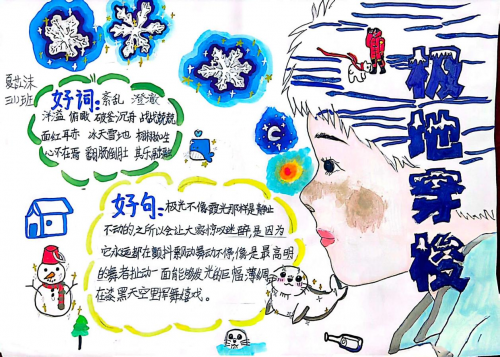 极地穿梭
三(1)班
好词:紊乱 澄澈
洋溢 俯瞰 破釜沉舟 战战兢兢
面红耳赤 冰天雪地 栩栩如生
心不在焉 翻肠倒肚 其乐融融
好句:极光不像霞光那样是静止
不动的之所以会让大家惊叹迷醉是因为
它永远都在颤抖飘动舞动不停像是最高明
的舞者扯动一面能够被光的巨幅薄绸
在漆黑天空里挥舞嬉戏。